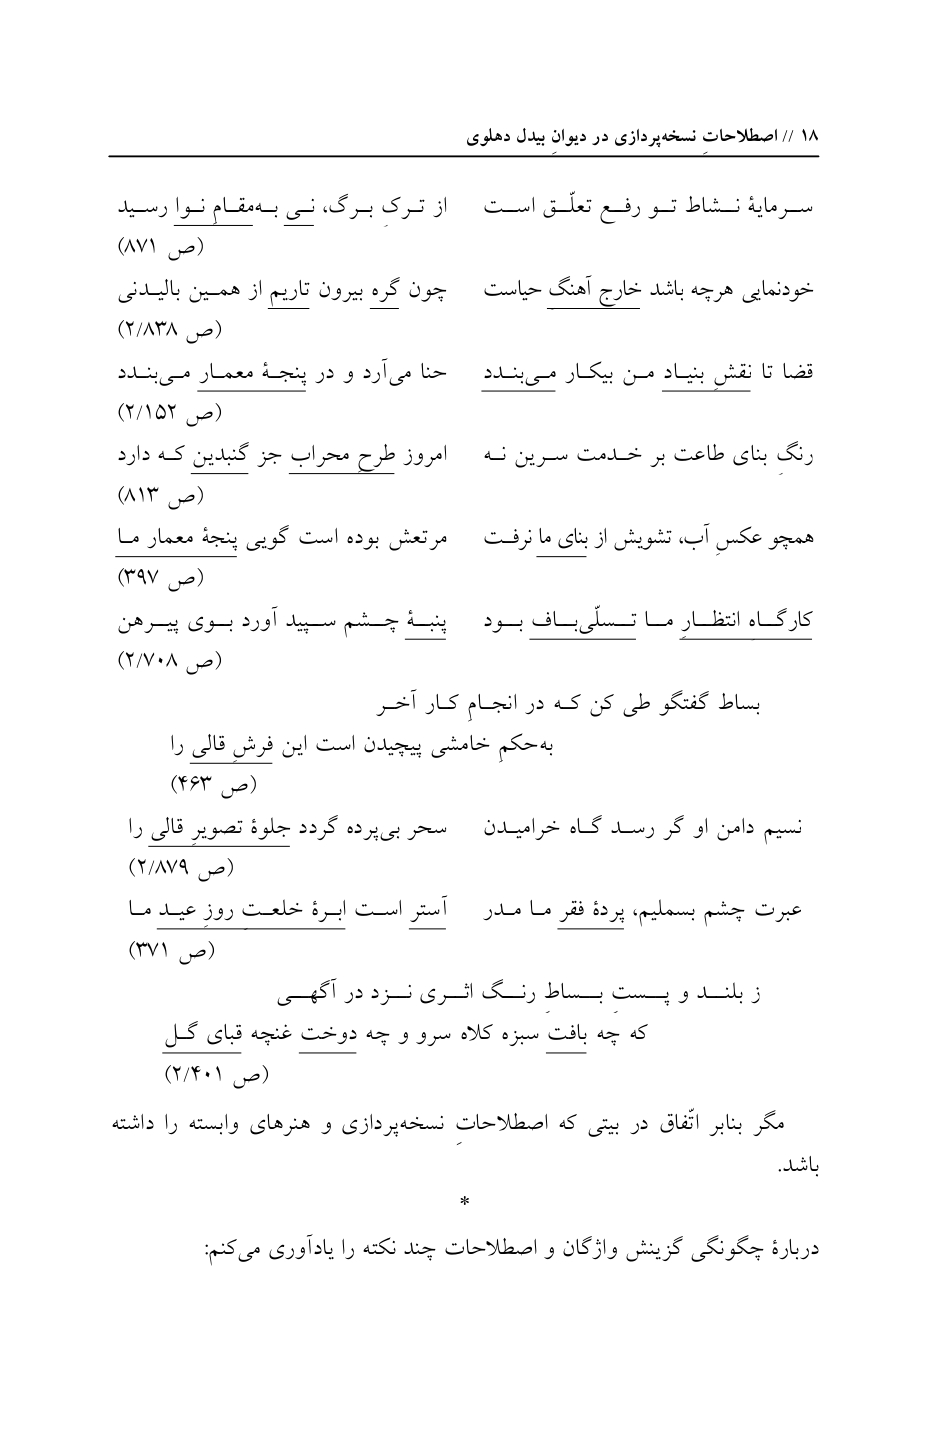 ۱۸ // اصطلاحاتِ نسخه‌پردازی در دیوانِ بیدل دهلوی
سرمایهٔ نشاط تو رفع تعلّق است از ترکِ برگ، نی به‌مقامِ نوا رسید
(ص ۸۷۱)
خودنمایی هرچه باشد خارج آهنگِ حیاست چون گره بیرون تاریم از همین بالیدنی
(ص ۲/۸۳۸)
قضا تا نقشِ بنیاد من بیکار می‌بندد حنا می‌آرد و در پنجهٔ معمار می‌بندد
(ص ۲/۱۵۲)
رنگِ بنای طاعت بر خدمت سرین نه امروز طرحِ محراب جز گنبدین که دارد
(ص ۸۱۳)
همچو عکسِ آب، تشویش از بنای ما نرفت مرتعش بوده است گویی پنجهٔ معمار ما
(ص ۳۹۷)
کارگاهِ انتظارِ ما تسلّی‌باف بود پنبهٔ چشم سپید آورد بوی پیرهن
(ص ۲/۷۰۸)
بساط گفتگو طی کن که در انجامِ کار آخر
به‌حکمِ خامشی پیچیدن است این فرشِ قالی را
(ص ۴۶۳)
نسیم دامن او گر رسد گاه خرامیدن سحر بی‌پرده گردد جلوهٔ تصویرِ قالی را
(ص ۲/۸۷۹)
عبرت چشم بسملیم، پردهٔ فقر ما مدر آستر است ابرهٔ خلعتِ روزِ عید ما
(ص ۳۷۱)
ز بلند و پستِ بساطِ رنگ اثری نزد در آگهی
که چه بافت سبزه کلاه سرو و چه دوخت غنچه قبای گل
(ص ۲/۴۰۱)
مگر بنابر اتّفاق در بیتی که اصطلاحاتِ نسخه‌پردازی و هنرهای وابسته را داشته
باشد.
*
دربارهٔ چگونگی گزینش واژگان و اصطلاحات چند نکته را یادآوری می‌کنم: